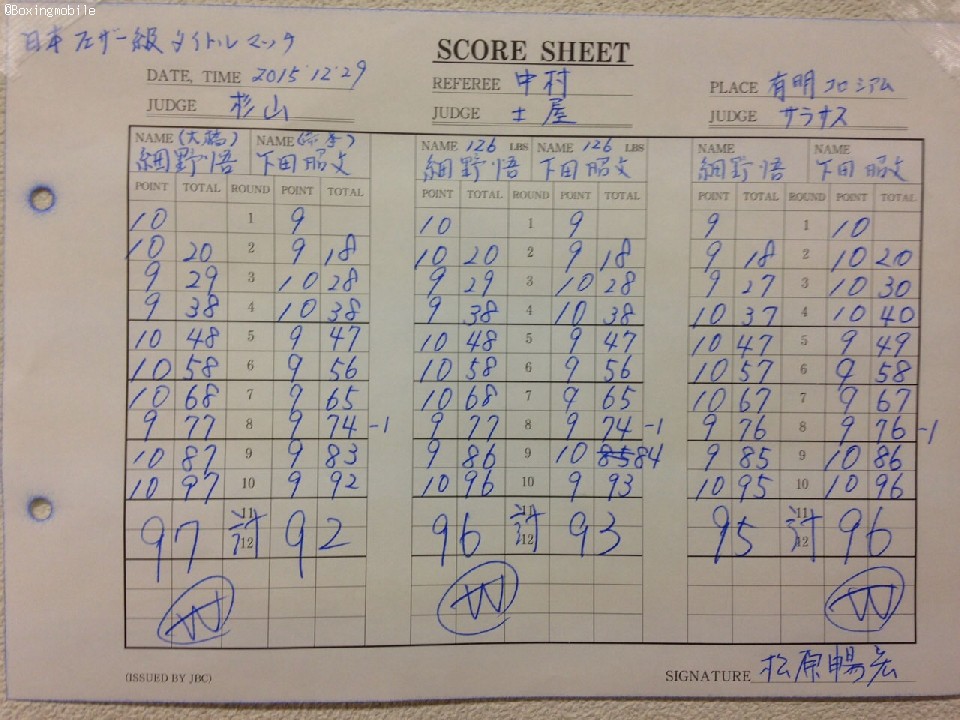 ©Boxingmobile
日本フェザー級タイトルマッチ
SCORE SHEET
DATE, TIME 2015 12 29
REFEREE 中村
PLACE 有明コロシアム
JUDGE 杉山
JUDGE 土屋
JUDGE サラサス
NAME (大橋) NAME NAME 126 LBS NAME 126 LBS NAME NAME
細野悟 下田昭文 細野悟 下田昭文 細野悟 下田昭文
POINT TOTAL ROUND POINT TOTAL POINT TOTAL ROUND POINT TOTAL POINT TOTAL ROUND POINT TOTAL
10 1 9 10 1 9 9 1 10
10 20 2 9 18 10 20 2 9 18 9 18 2 10 20
9 29 3 10 28 9 29 3 10 28 9 27 3 10 30
9 38 4 10 38 9 38 4 10 38 10 37 4 10 40
10 48 5 9 47 10 48 5 9 47 10 47 5 9 49
10 58 6 9 56 10 58 6 9 56 10 57 6 9 58
10 68 7 9 65 10 68 7 9 65 10 67 7 9 67
9 77 8 9 74 -1 9 77 8 9 74 -1 9 76 8 9 76 -1
10 87 9 9 83 9 86 9 10 85 84 9 85 9 10 86
10 97 10 9 92 10 96 10 9 93 10 95 10 10 96
11 11 11
97 計 92 96 計 93 95 計 96
12 12 12
W W W
(ISSUED BY JBC)
SIGNATURE 松原暢宏